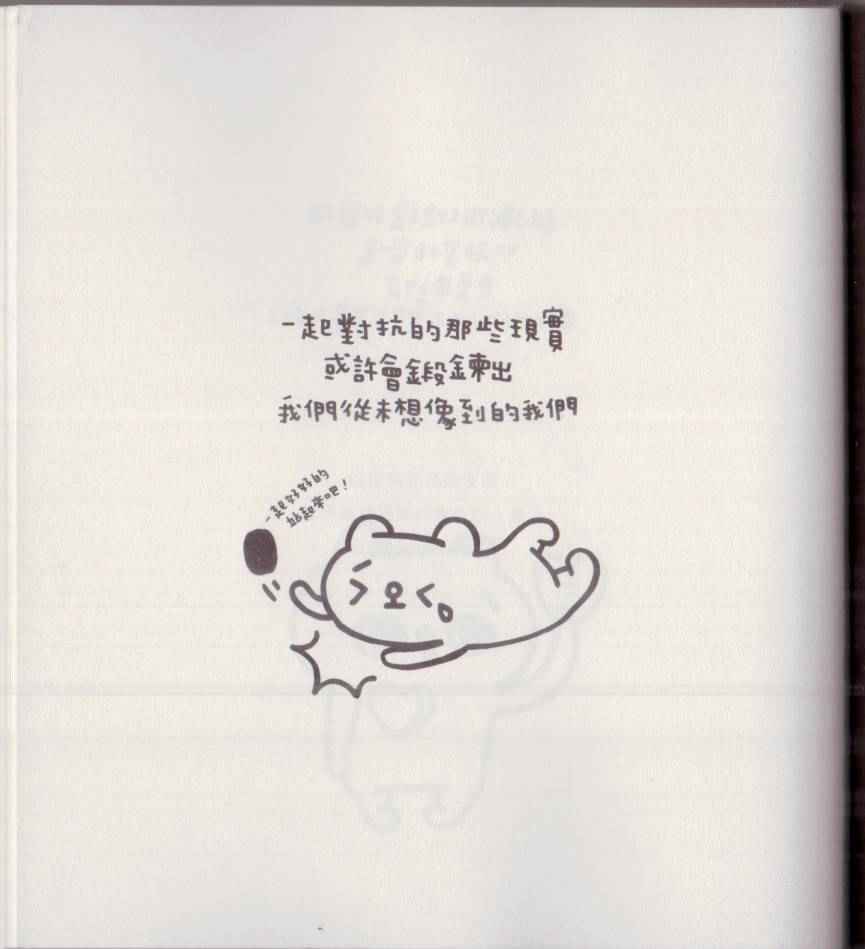 一起對抗的那些現實
或許會鍛鍊出
我們從未想像到的我們
一起好好的
站起來吧!